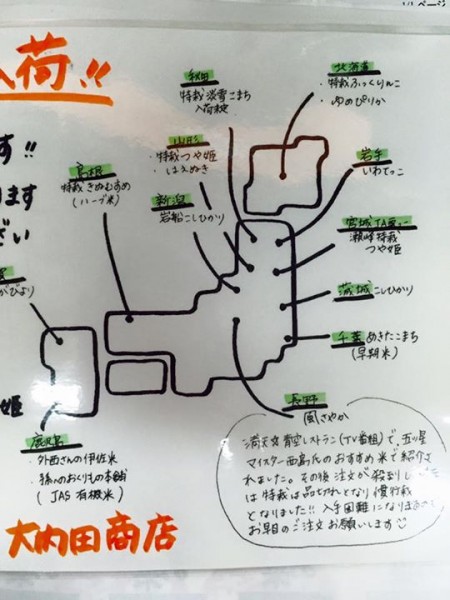 入荷!!
秋田
特栽 淡雪こまち
入荷未定
北海道
・特栽ふっくりんこ
・ゆめぴりか
す!!
ります
ださい
山形
・特栽つや姫
・はえぬき
岩手
いわてっこ
島根
特栽 きぬむすめ
(ハーブ米)
新潟
岩船こしひかり
瀬峰特栽
つや姫
茨城 こしひかり
がびより
千葉 あきたこまち
(早期米)
長野
風さやか
姫
鹿児島
・外西さんの伊佐米
・孫へのおくりもの本舗
(JAS有機米)
満天☆青空レストラン(TV番組)で、五ツ星
マイスター西島氏のおすすめ米で紹介さ
れました。その後注文が殺到し
は特栽は品切れとなり慣行栽
となりました!! 入手困難になります
お早めのご注文お願いします
大内田商店